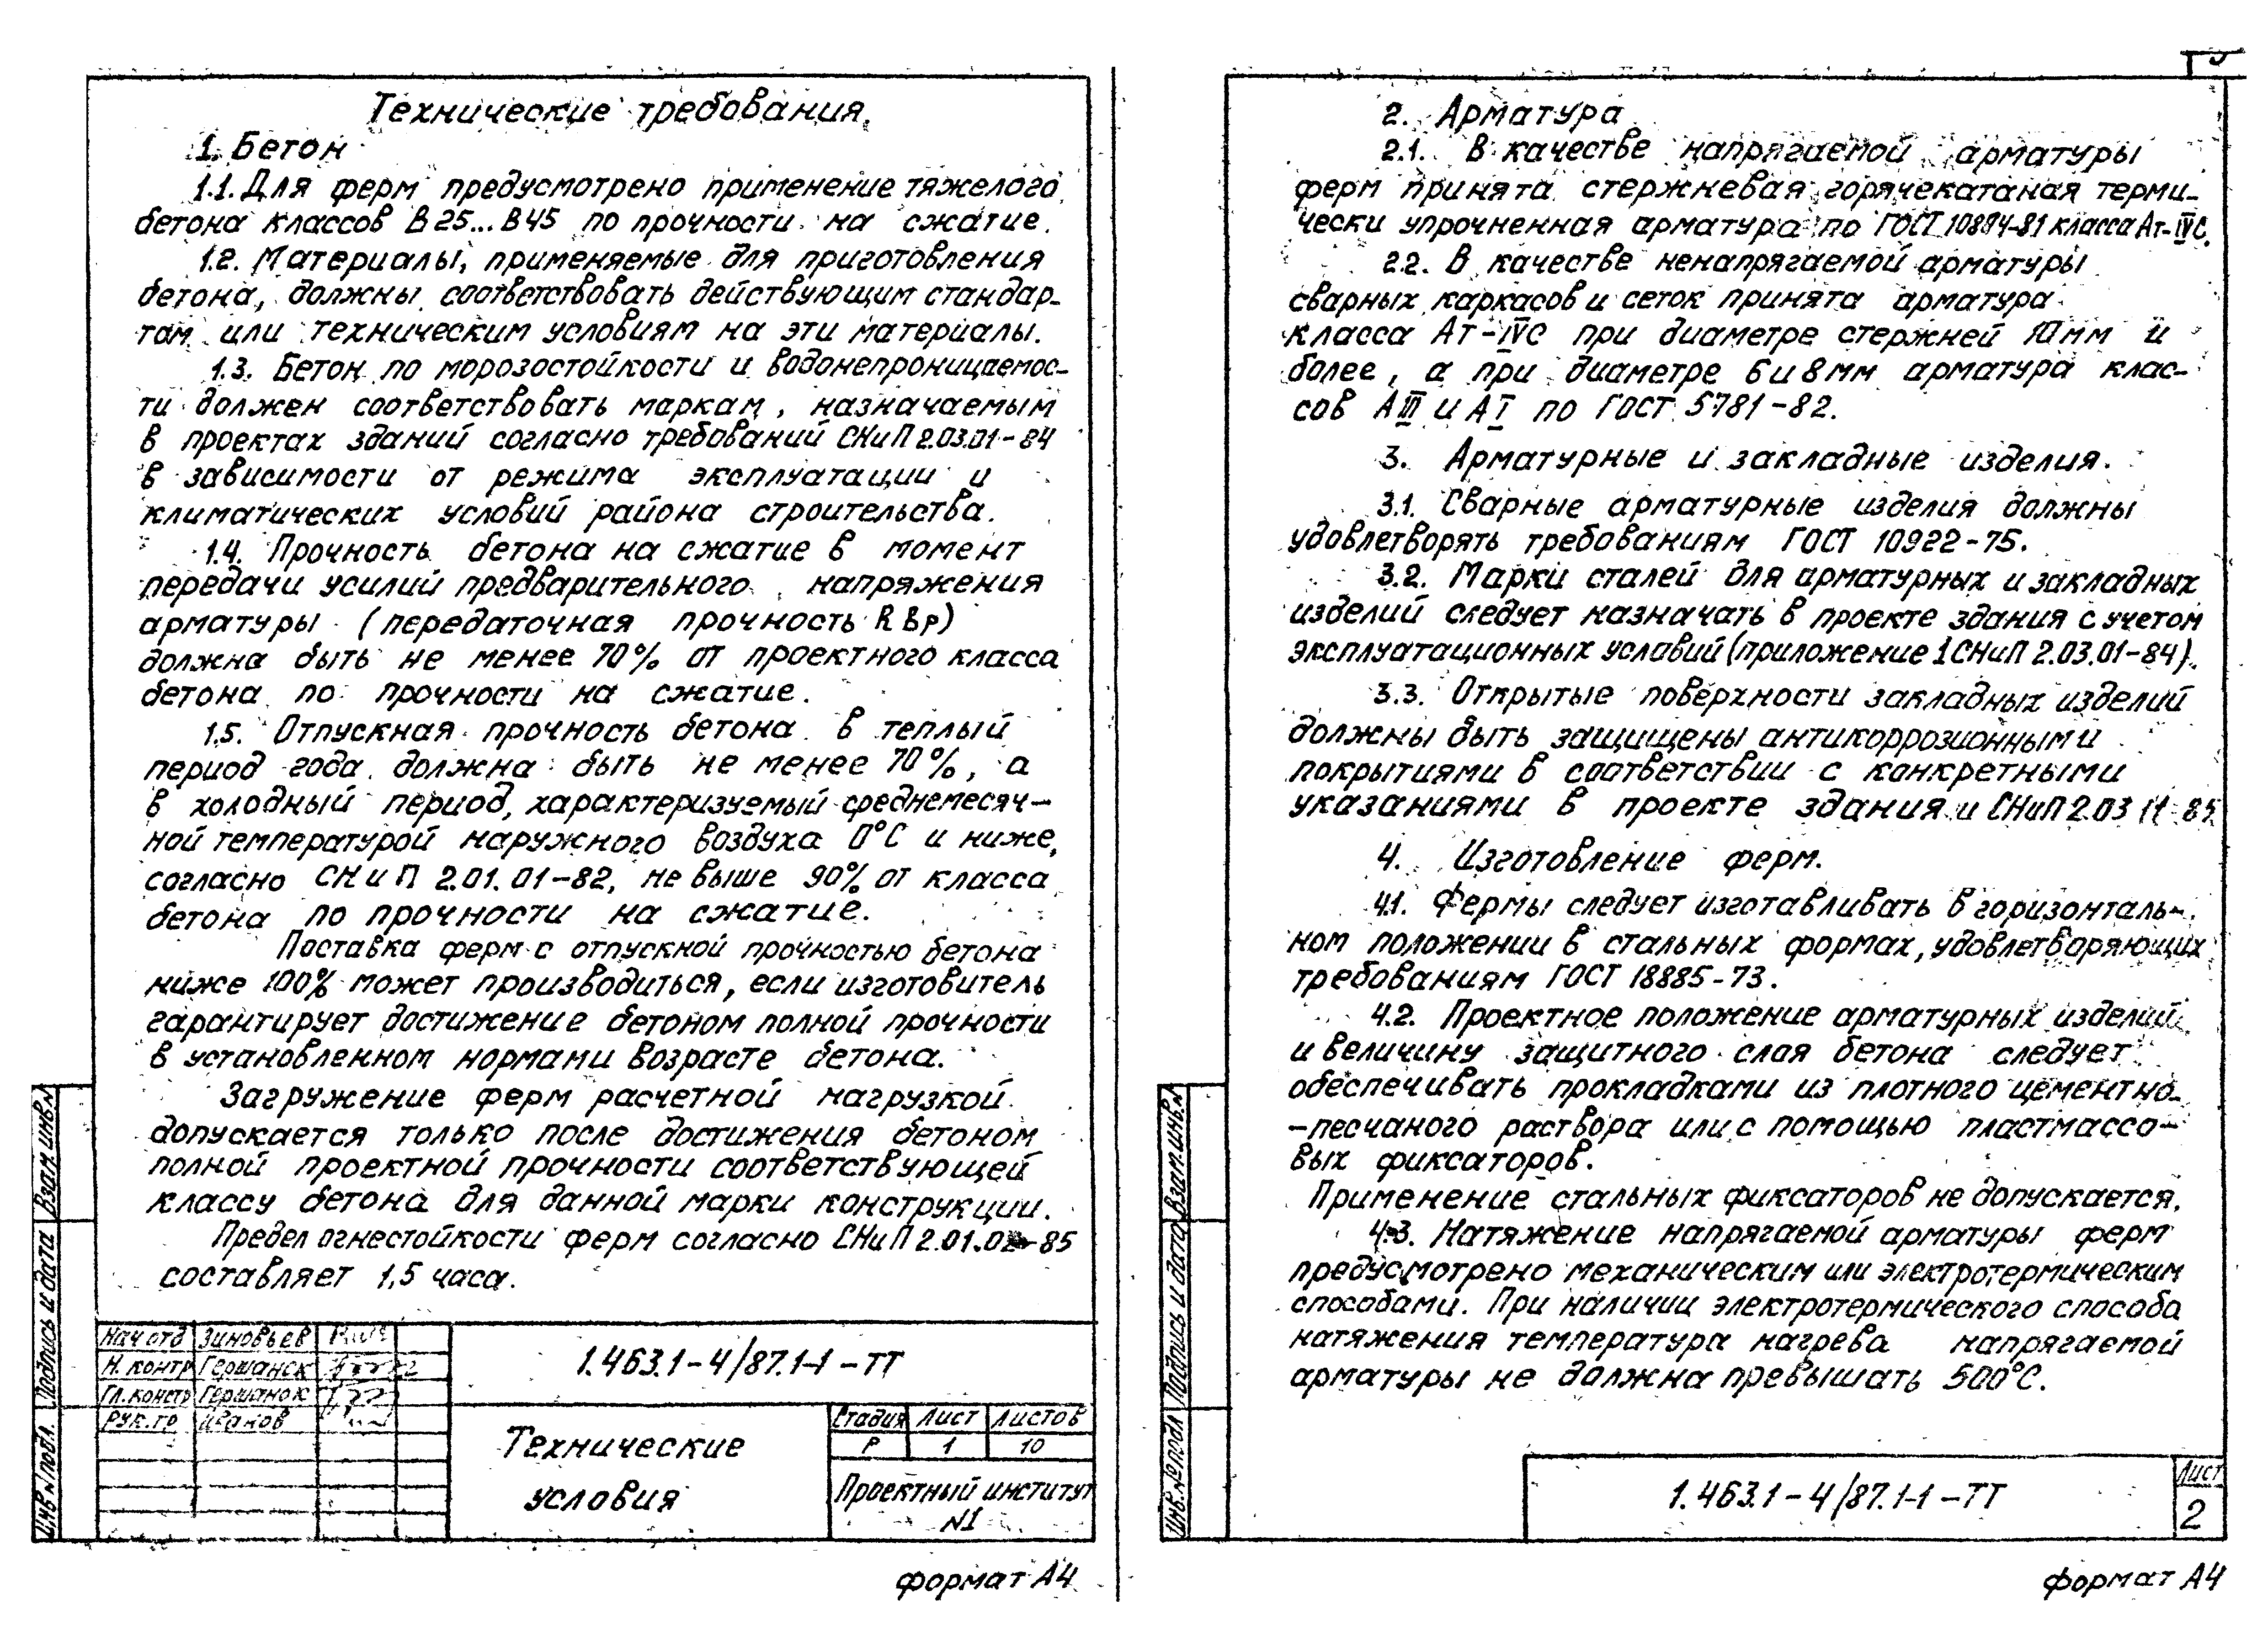 Технические требования.
1. Бетон
1.1. Для ферм предусмотрено применение тяжелого
бетона классов В25...В45 по прочности на сжатие.
1.2. Материалы, применяемые для приготовления
бетона, должны соответствовать действующим стандар-
там или техническим условиям на эти материалы.
1.3. Бетон по морозостойкости и водонепроницаемос-
ти должен соответствовать маркам, назначаемым
в проектах зданий согласно требований СНиП 2.03.01-84
в зависимости от режима эксплуатации и
климатических условий района строительства.
1.4. Прочность бетона на сжатие в момент
передачи усилий предварительного напряжения
арматуры (передаточная прочность Rвр)
должна быть не менее 70% от проектного класса
бетона по прочности на сжатие.
1.5. Отпускная прочность бетона в теплый
период года должна быть не менее 70%, а
в холодный период, характеризуемый среднемесяч-
ной температурой наружного воздуха 0°С и ниже,
согласно СНиП 2.01.01-82, не выше 90% от класса
бетона по прочности на сжатие.
Поставка ферм с отпускной прочностью бетона
ниже 100% может производиться, если изготовитель
гарантирует достижение бетоном полной прочности
в установленном нормами возрасте бетона.
Загружение ферм расчетной нагрузкой
допускается только после достижения бетоном
полной проектной прочности соответствующей
классу бетона для данной марки конструкции.
Предел огнестойкости ферм согласно СНиП 2.01.02-85
составляет 1,5 часа.
Нач.отд Зиновьев
Н. контр Гершанок
Гл.констр Гершанок
Рук.гр Иванов
1.463.1-4/87.1-1-ТТ
Технические
условия
Стадия Лист Листов
Р 1 10
Проектный институт
№1
Взам.инв.№
Подпись и дата
Инв.№ подл.
формат А4
2. Арматура
2.1. В качестве напрягаемой арматуры
ферм принята стержневая горячекатаная терми-
чески упрочненная арматура по ГОСТ 10884-81 класса Ат-IVС.
2.2. В качестве ненапрягаемой арматуры
сварных каркасов и сеток принята арматура
класса Ат-IVС при диаметре стержней 10мм и
более, а при диаметре 6 и 8мм арматура клас-
сов АIII и АI по ГОСТ 5781-82.
3. Арматурные и закладные изделия.
3.1. Сварные арматурные изделия должны
удовлетворять требованиям ГОСТ 10922-75.
3.2. Марки сталей для арматурных и закладных
изделий следует назначать в проекте здания с учетом
эксплуатационных условий (приложение 1 СНиП 2.03.01-84).
3.3. Открытые поверхности закладных изделий
должны быть защищены антикоррозионными
покрытиями в соответствии с конкретными
указаниями в проекте здания и СНиП 2.03 11-85
4. Изготовление ферм.
4.1. Фермы следует изготавливать в горизонталь-
ном положении в стальных формах, удовлетворяющих
требованиям ГОСТ 18885-73.
4.2. Проектное положение арматурных изделий
и величину защитного слоя бетона следует
обеспечивать прокладками из плотного цементно-
-песчаного раствора или с помощью пластмассо-
вых фиксаторов.
Применение стальных фиксаторов не допускается.
4.3. Натяжение напрягаемой арматуры ферм
предусмотрено механическим или электротермическим
способами. При наличии электротермического способа
натяжения температура нагрева напрягаемой
арматуры не должна превышать 500°С.
1.463.1-4/87.1-1-ТТ
Лист
2
Взам.инв.№
Подпись и дата
Инв.№ подл
формат А4